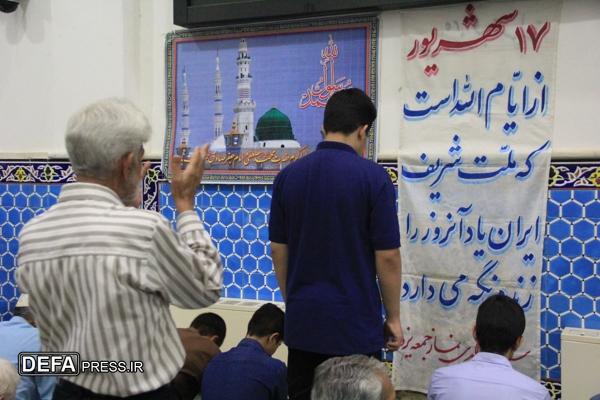 ۱۷ شهریور
از ایّام الله است
که ملّت شریف
ایران یاد آنروز را
زنده نگه می دارد
نماز جمعه یزد
محمد رسول الله
DEFA PRESS.IR